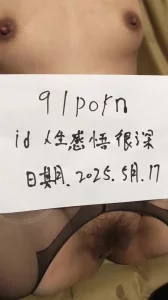 91porn
id 人生感悟很深
日期.2025.5月.17